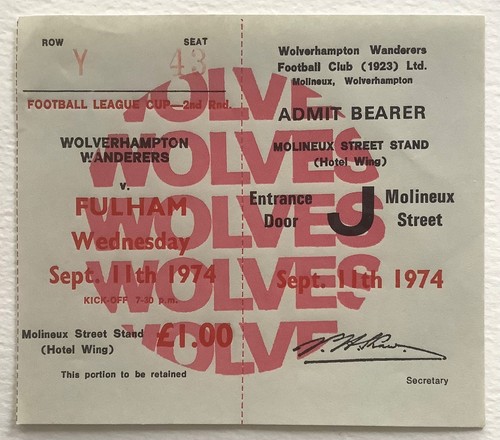 ROW SEAT
Y 43
FOOTBALL LEAGUE CUP—2nd Rnd.
WOLVERHAMPTON
WANDERERS
v.
FULHAM
Wednesday
Sept. 11th 1974
KICK-OFF 7-30 p.m.
Molineux Street Stand £1.00
(Hotel Wing)
This portion to be retained
Wolverhampton Wanderers
Football Club (1923) Ltd.
Molineux, Wolverhampton
ADMIT BEARER
MOLINEUX STREET STAND
(Hotel Wing)
Entrance J Molineux
Door Street
Sept. 11th 1974
Secretary
WOLVES
WOLVES
WOLVES
WOLVES
WOLVE